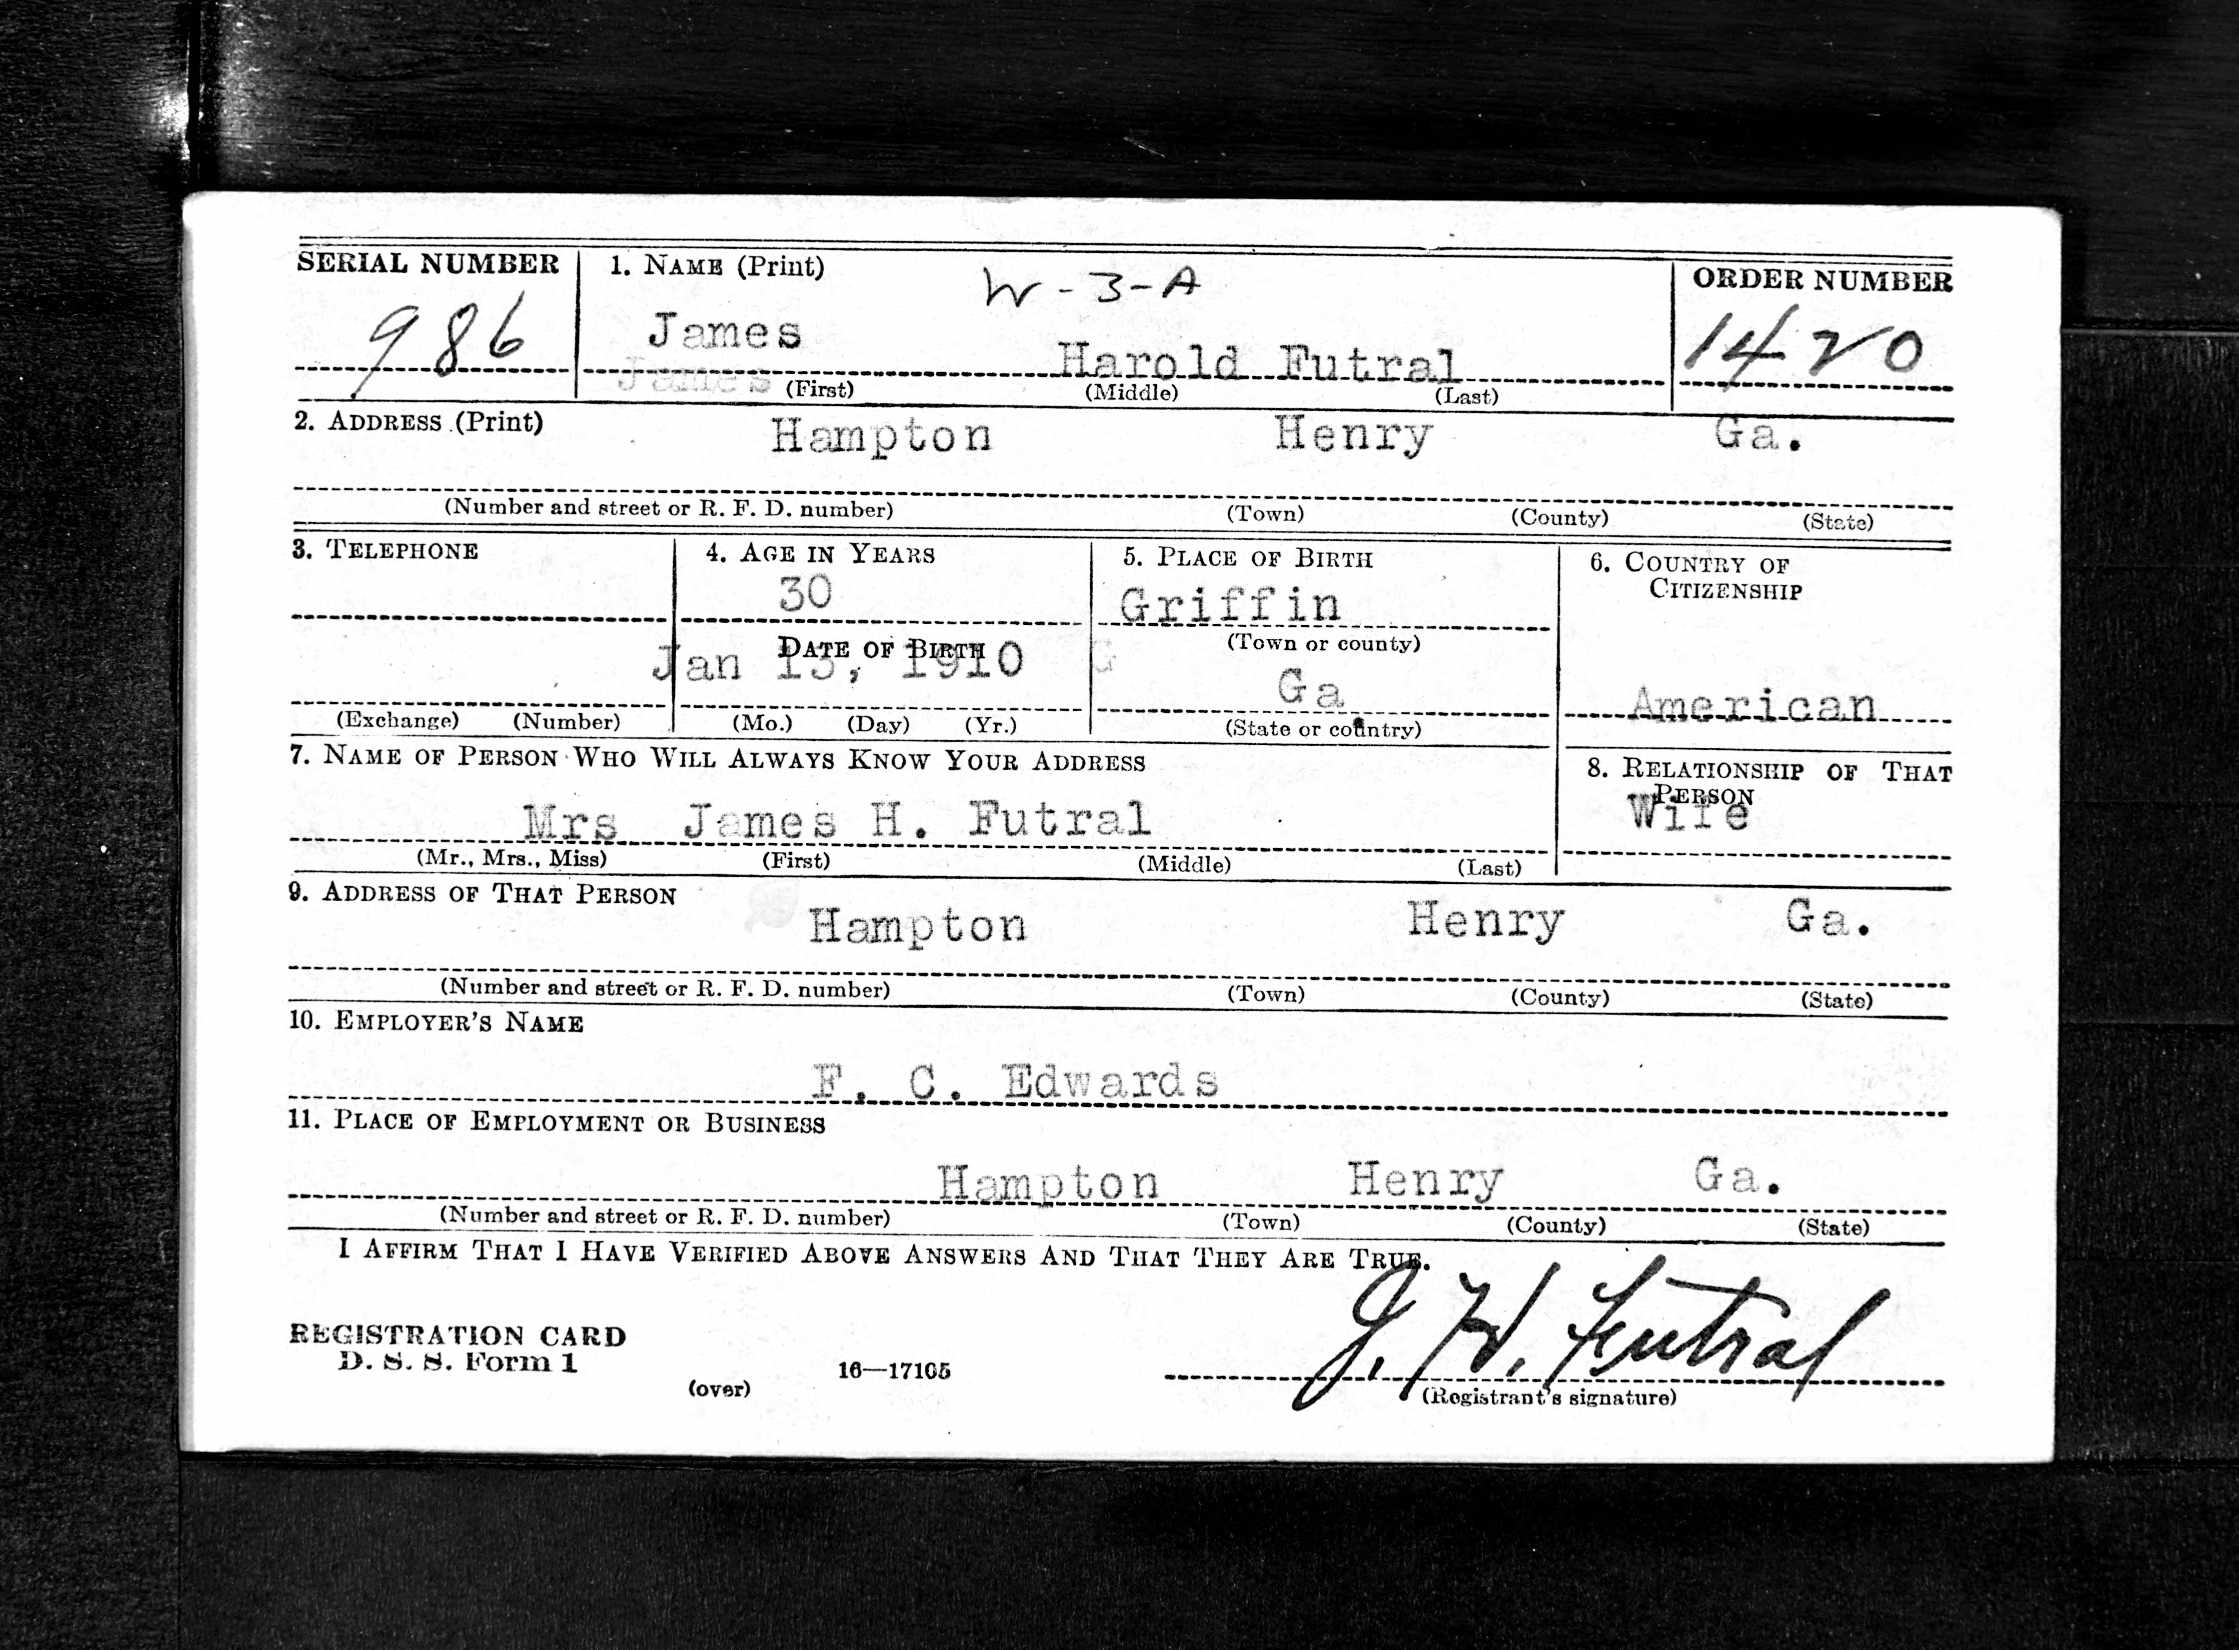 SERIAL NUMBER 1. NAME (Print) ORDER NUMBER
W-3-A
986 James 1420
James Harold Futral
(First) (Middle) (Last)
2. ADDRESS (Print) Hampton Henry Ga.
(Number and street or R. F. D. number) (Town) (County) (State)
3. TELEPHONE 4. AGE IN YEARS 5. PLACE OF BIRTH 6. COUNTRY OF
CITIZENSHIP
30 Griffin
DATE OF BIRTH (Town or county)
Jan 13, 1910 G
Ga. American
(Exchange) (Number) (Mo.) (Day) (Yr.) (State or country)
7. NAME OF PERSON WHO WILL ALWAYS KNOW YOUR ADDRESS 8. RELATIONSHIP OF THAT
PERSON
Mrs James H. Futral Wife
(Mr., Mrs., Miss) (First) (Middle) (Last)
9. ADDRESS OF THAT PERSON
Hampton Henry Ga.
(Number and street or R. F. D. number) (Town) (County) (State)
10. EMPLOYER'S NAME
F. C. Edwards
11. PLACE OF EMPLOYMENT OR BUSINESS
Hampton Henry Ga.
(Number and street or R. F. D. number) (Town) (County) (State)
I AFFIRM THAT I HAVE VERIFIED ABOVE ANSWERS AND THAT THEY ARE TRUE.
J. H. Futral
REGISTRATION CARD
D. S. S. Form 1 16—17105
(over) (Registrant's signature)